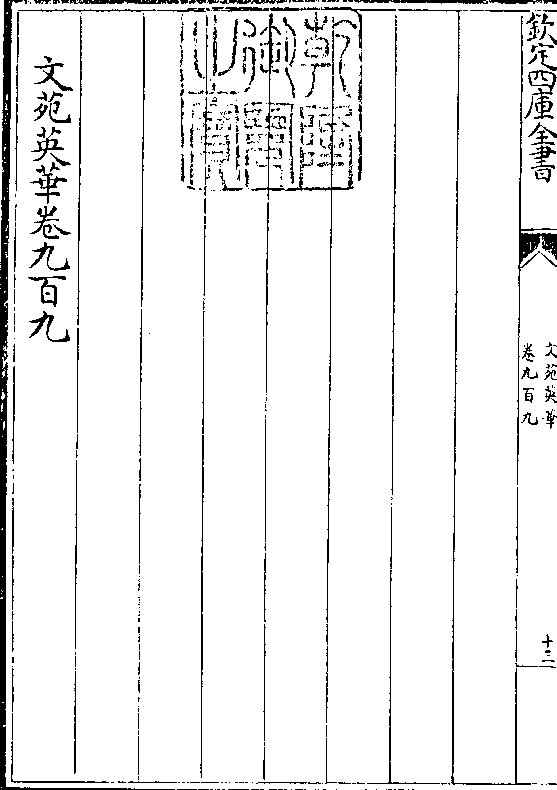 欽定四庫全書
文苑英華
卷九百九
十三
乾隆
御覽
之寶
文苑英華卷九百九